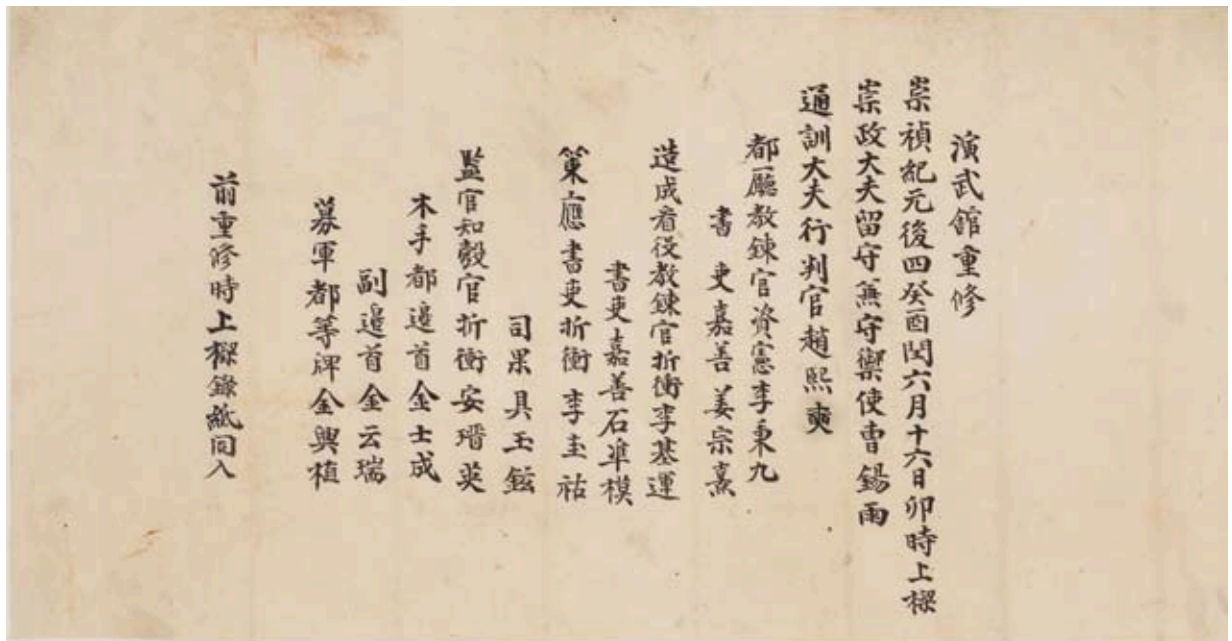 演武館重修
崇禎紀元後四癸酉閏六月十六日卯時上樑
崇政大夫留守兼守禦使曺錫雨
通訓大夫行判官趙熙奭
都廳教鍊官資憲李秉九
書吏嘉善姜宗熹
造成看役教鍊官折衝李基運
書吏嘉善石準模
策應書吏折衝李圭祜
司果具玉鉉
監官知彀官折衝安瑨英
木手都邊首金士成
副邊首金云瑞
募軍都等牌金興植
前重修時上樑錄紙同入